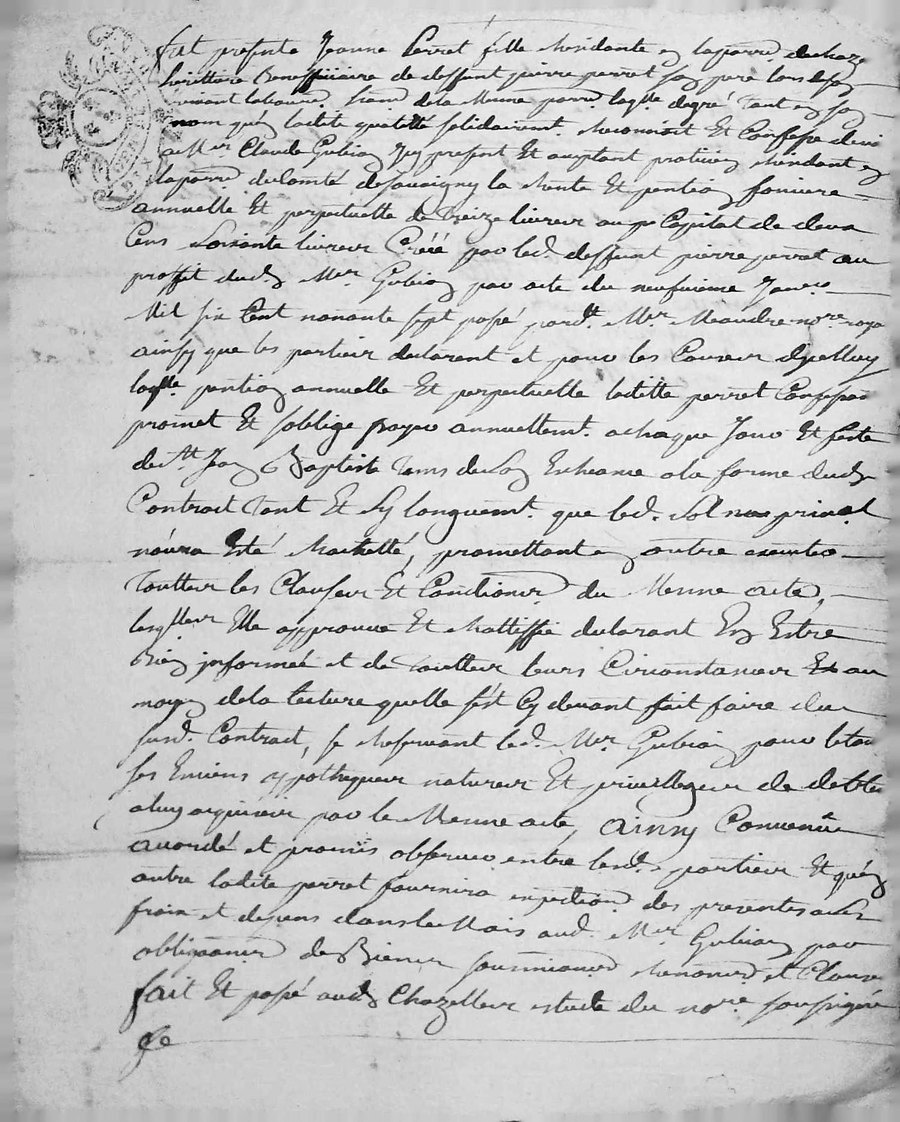 fut presente Jeanne Perret fille residante en laparre. dechaz
heritiere Beneffiiaire de deffunt pierre perret son pere lors de son
vivant laboure. de la Mesme parre. laqlle degré Tant en son
nom quén ladite qualitté solidairemt. Reconnoit Et Confesse devoir
a Mer. Claude Gubian Icy present Et aceptant praticien Residant en
laparre. du Comté de la Rente Et pention fonciere
annuelle Et perpetuelle de Treize livres au pr. Capital de deux
Cens Soisante livres Créé par led. deffunt pierre perret au
proffit dud. Mer. Gubian par acte du neufvieme Janer.
Mil six Cent nonante sept passé pardt. Mer. Meandre nore. roya
ainsy que les parties declarent et pour les Causes dyselluy
laqlle pention annuelle Et perpetuelle laditte perret Confessan
promet Et soblige payer annuellemt. achaque Jour Et feste
de St. Jean Baptiste Tems de son Echeance ala forme dud.
Contract Tant Et Sy longuemt. que led. Sol prinal
náura Esté Rachetté, promettant en outre executer
Touttes les Clauses Et Conditions du Mesme acte,
lesqlles Elle approuve Et Rattiffie declarant En Estre
Bien informeé et de Touttes leurs Circonstances au
moyen dela lecture quelle sést Cy devant fait faire du
susd. Contract, se Reservant led. Mer. Gubian pour le tou
ses Entiens yppotheques natures Et privilleges de debtes
aluy acquises par le Mesme acte, Ainsy Convenu
acordé et promis observer entre lesd. parties Et quén
outre ladite perret fournira expedition des presentes ases
frais et depens dans le Mois aud. Mer. Gubian par
obligaons. de Biens soumissions Renons. et Clauses
fait Et passé aud. Chazelles estude du nore. soussigné
Le